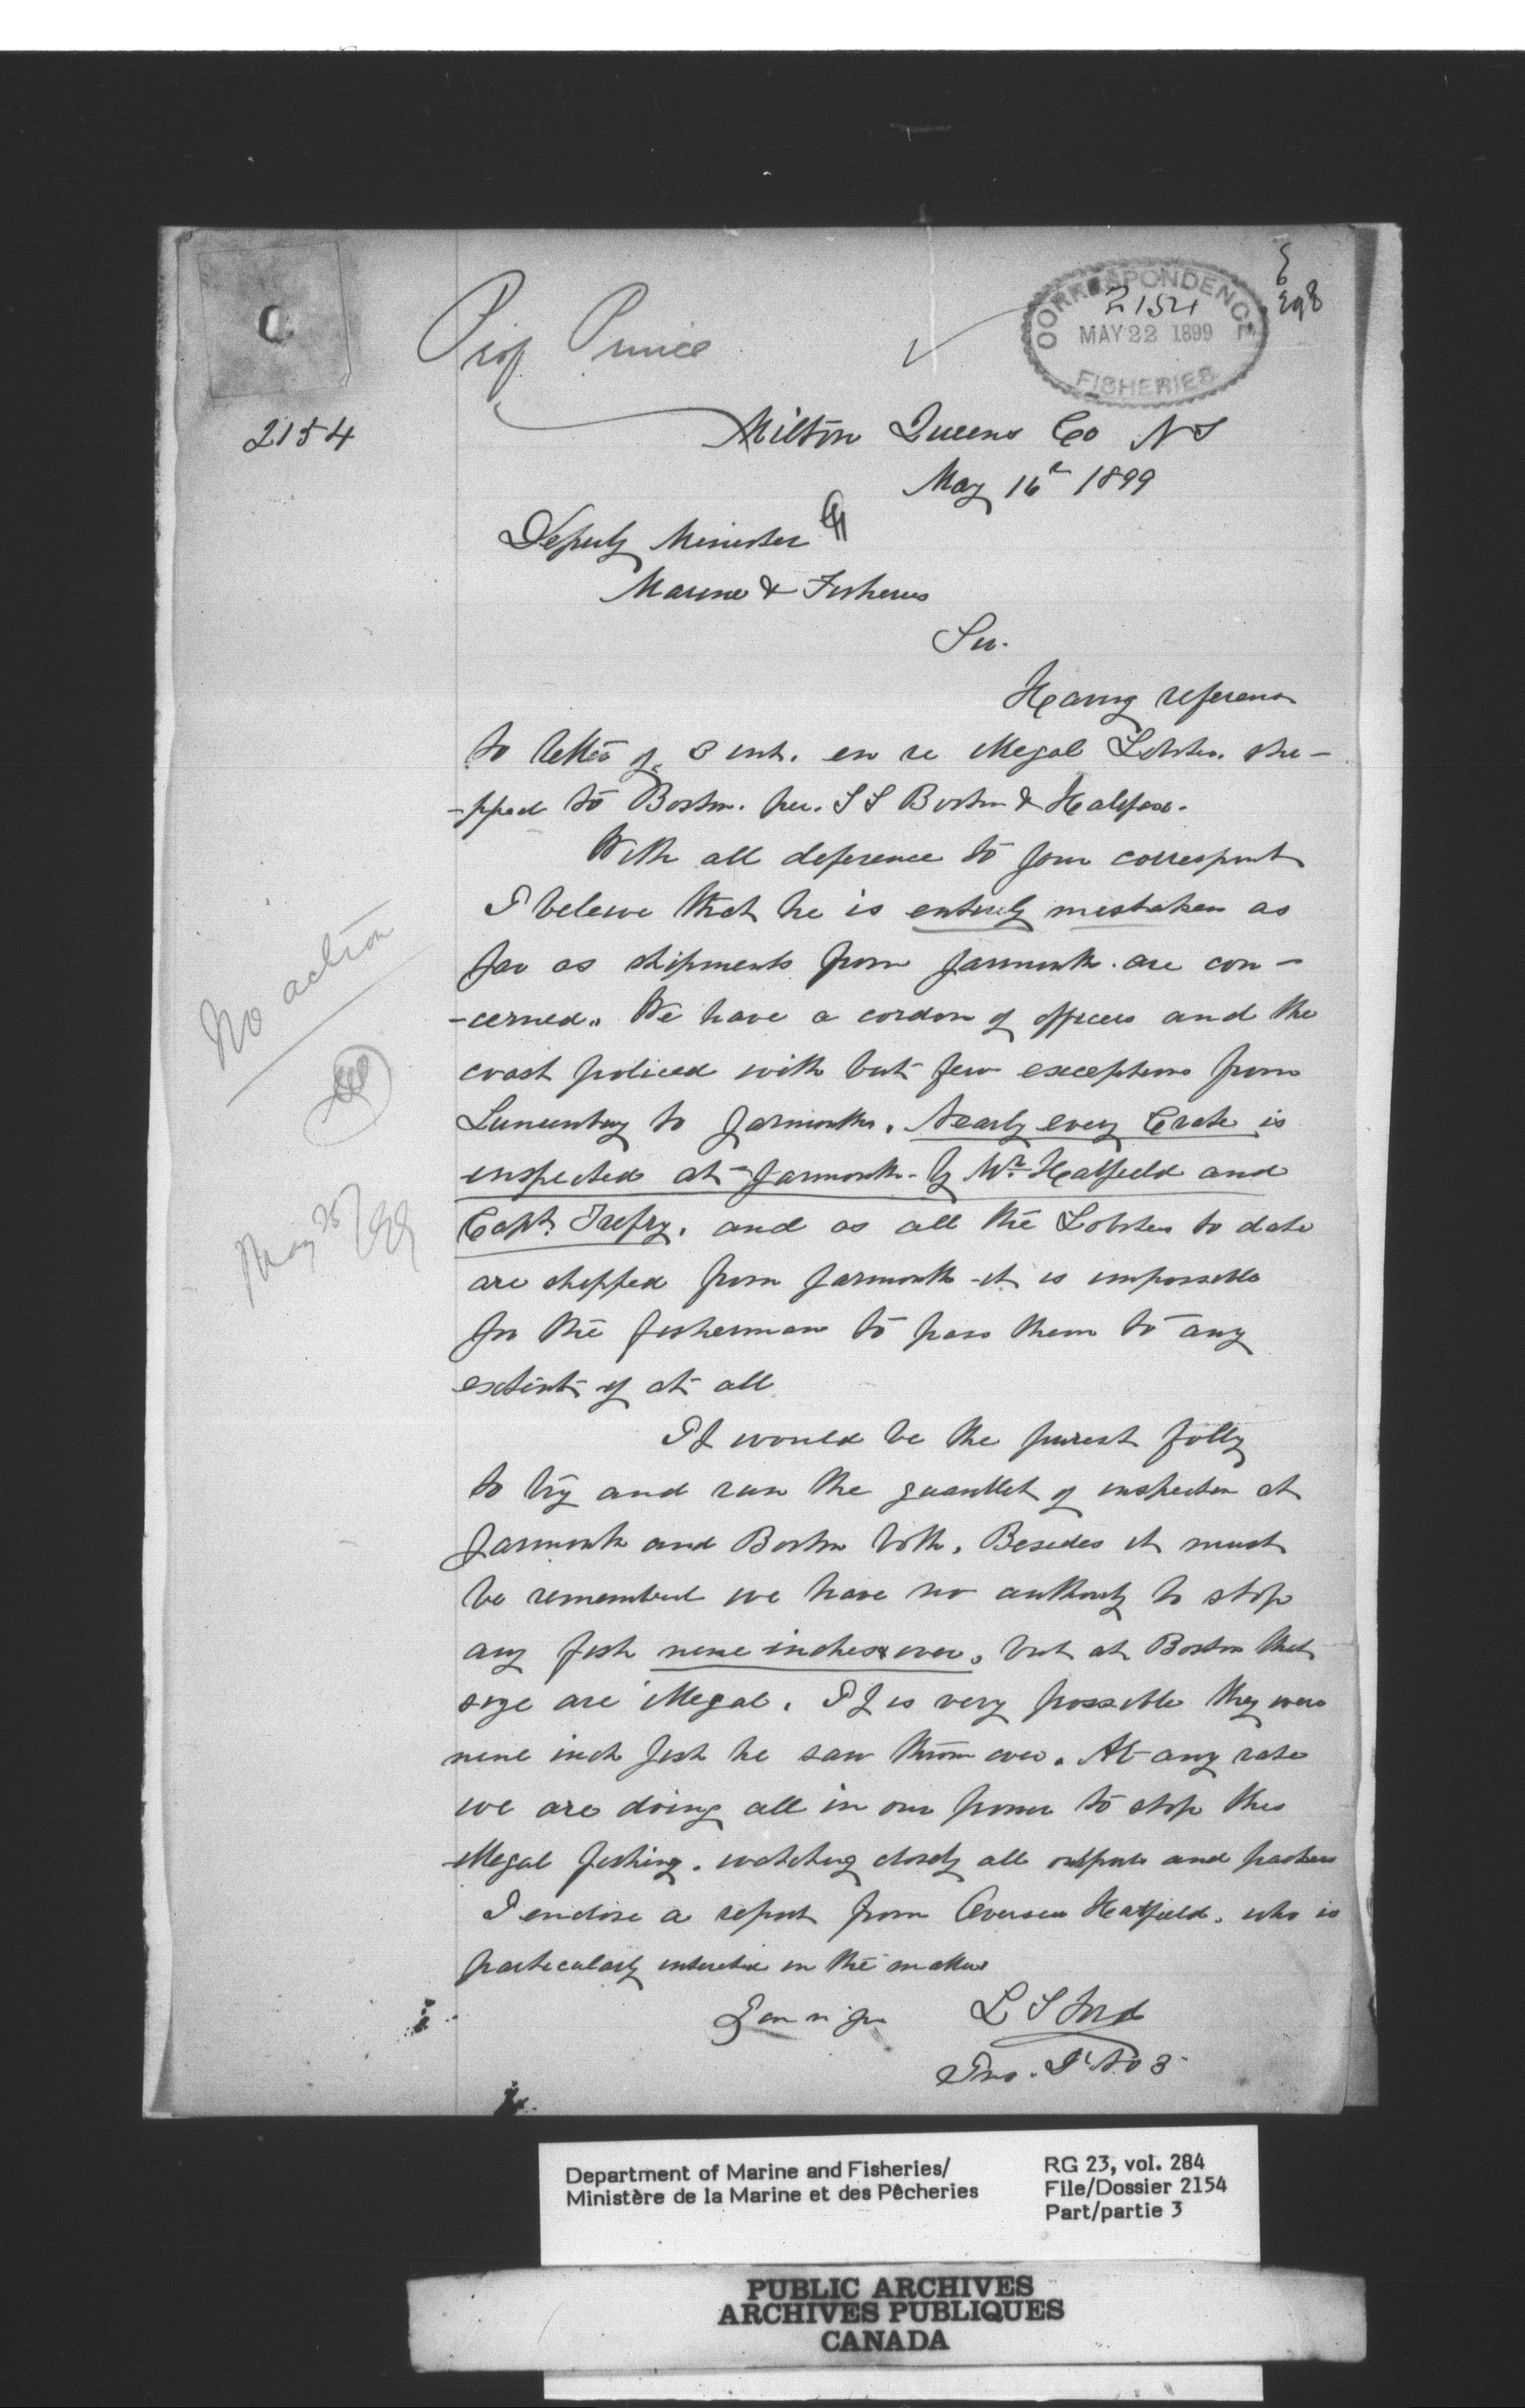 C
2154
Prof Prince
CORRESPONDENCE
2154
MAY 22 1899
FISHERIES
Milton Queens Co N S
May 16th 1899
Deputy Minister
Marine & Fisheries
Sir.
Having reference
to letter of 3 inst. en re illegal Lobsters shi-
-pped to Boston. per. S S Boston & Halifax.
With all deference to your correspont
I beleive that he is entirely mistaken as
far as shipments from Yarmouth are con-
-cerned. We have a cordon of officers and the
coast policed with but few exceptions from
Lunenburg to Yarmouth. Nearly every Crate is
inspected at Yarmouth by Mr. Hatfield and
Capt. Trefry. and as all the Lobsters to date
are shipped from Yarmouth it is impossible
for the fisherman to pass them to any
extent if at all
It would be the purest folly
to try and run the guantlet of inspection at
Yarmouth and Boston both. Besides it must
be rememberd we have no authority to stop
any fish nine inches & over. but at Boston that
size are illegal. It is very possible they were
nine inch fish he saw thrown over. At any rate
we are doing all in our power to stop this
illegal fishing. watching closely all outports and packers
I enclose a report from Overseer Hatfield. who is
particularly interested in the matter
L S Ford
Ins. Dt No 3
No action
May 25/99
Department of Marine and Fisheries/
Ministère de la Marine et des Pêcheries
RG 23, vol. 284
File/Dossier 2154
Part/partie 3
PUBLIC ARCHIVES
ARCHIVES PUBLIQUES
CANADA